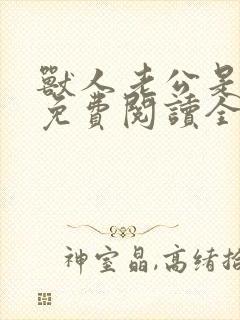 獸人老公是
免費閱讀全
神室晶,高绪拾